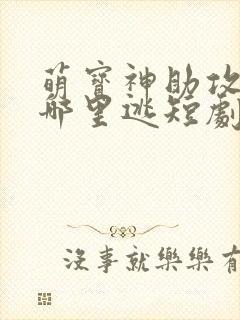 萌寶神助攻
哪里逃短劇
沒事就樂樂有